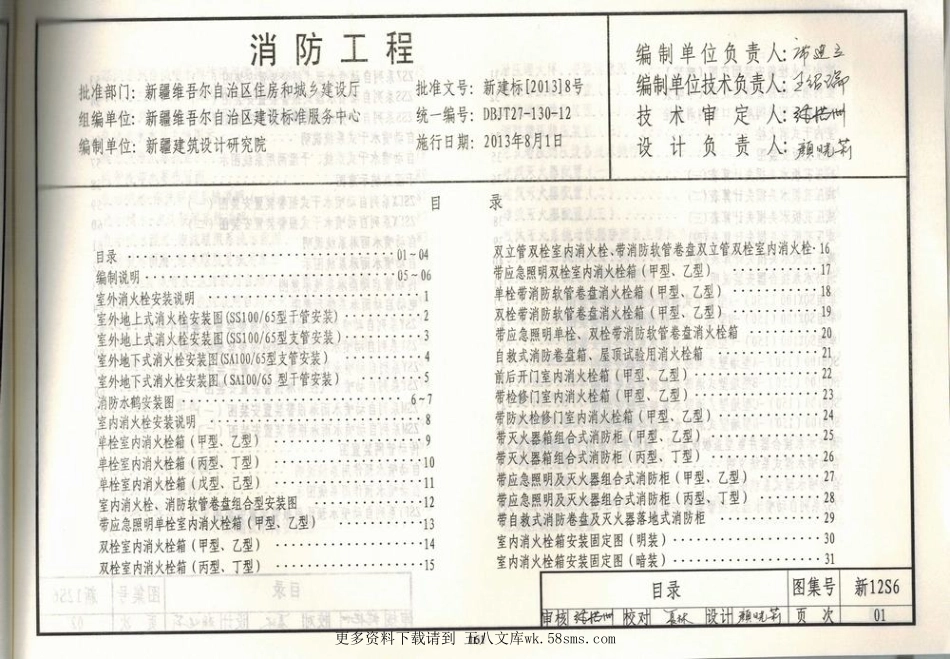 消防工程
批准部门：新疆维吾尔自治区住房和城乡建设厅 批准文号：新建标[2013]8号
组编单位：新疆维吾尔自治区建设标准服务中心 统一编号：DBJT27-130-12
编制单位：新疆建筑设计研究院 施行日期：2013年8月1日
编制单位负责人：
编制单位技术负责人：
技术审定人：
设计负责人：颜晓莉
目 录
目录 ································ 01～04
编制说明 ································ 05～06
室外消火栓安装说明 ································ 1
室外地上式消火栓安装图(SS100/65型干管安装) ············ 2
室外地上式消火栓安装图(SS100/65型支管安装) ············ 3
室外地下式消火栓安装图(SA100/65型支管安装) ············ 4
室外地下式消火栓安装图(SA100/65 型干管安装) ············ 5
消防水鹤安装图 ································ 6～7
室内消火栓安装说明 ································ 8
单栓室内消火栓箱(甲型、乙型) ···················· 9
单栓室内消火栓箱(丙型、丁型) ···················· 10
单栓室内消火栓箱(戊型、己型) ···················· 11
室内消火栓、消防软管卷盘组合型安装图 ················ 12
带应急照明单栓室内消火栓箱(甲型、乙型) ·············· 13
双栓室内消火栓箱(甲型、乙型) ···················· 14
双栓室内消火栓箱(丙型、丁型) ···················· 15
双立管双栓室内消火栓、带消防软管卷盘双立管双栓室内消火栓·16
带应急照明双栓室内消火栓箱(甲型、乙型) ·············· 17
单栓带消防软管卷盘消火栓箱(甲型、乙型) ·············· 18
双栓带消防软管卷盘消火栓箱(甲型、乙型) ·············· 19
带应急照明单栓、双栓带消防软管卷盘消火栓箱 ············ 20
自救式消防卷盘箱、屋顶试验用消火栓箱 ················ 21
前后开门室内消火栓箱(甲型、乙型) ·················· 22
带检修门室内消火栓箱(甲型、乙型) ·················· 23
带防火检修门室内消火栓箱(甲型、乙型) ················ 24
带灭火器箱组合式消防柜(甲型、乙型) ················ 25
带灭火器箱组合式消防柜(丙型、丁型) ················ 26
带应急照明及灭火器组合式消防柜(甲型、乙型) ············ 27
带应急照明及灭火器组合式消防柜(丙型、丁型) ············ 28
带自救式消防卷盘及灭火器落地式消防柜 ················ 29
室内消火栓箱安装固定图(明装) ···················· 30
室内消火栓箱安装固定图(暗装) ···················· 31
目录 图集号 新12S6
审核 校对 设计 颜晓莉 页次 01
更多资料下载请到 五八文库wk.58sms.com